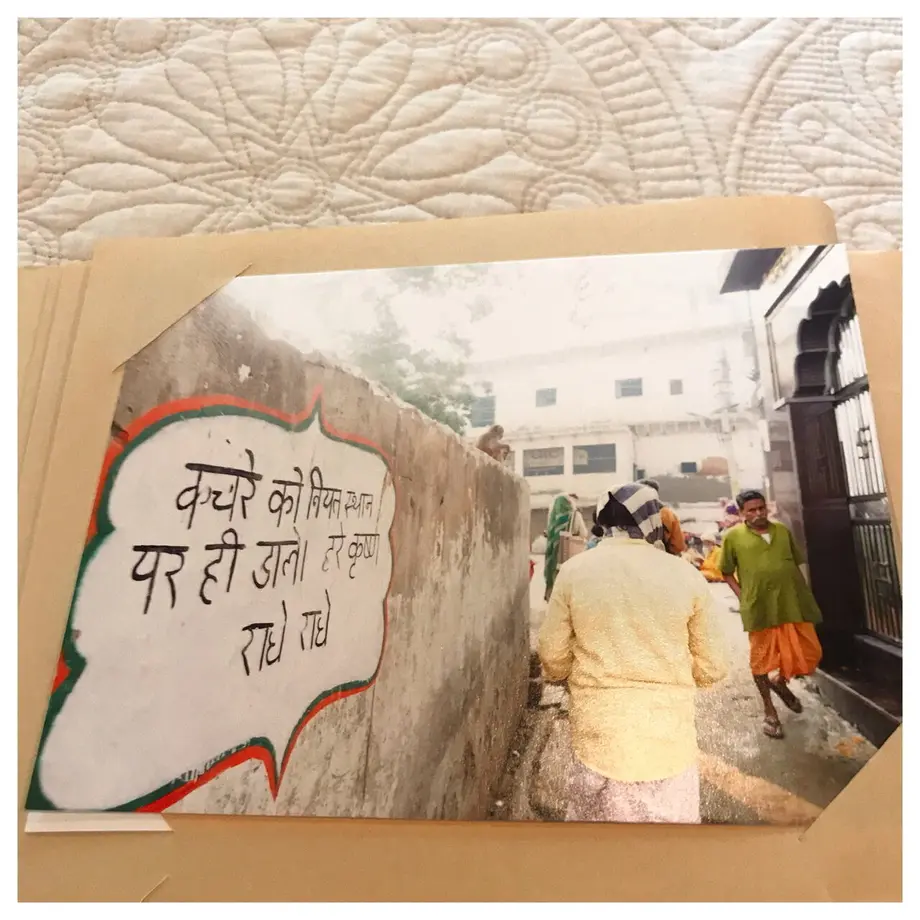 कचरे को नियत स्थान
पर ही डाले। हरे कृष्ण
राधे राधे